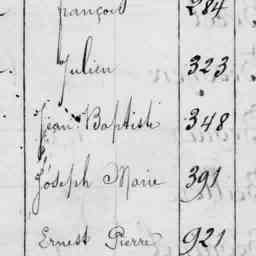 françois 284
Julien 323
Jean Baptiste 348
Joseph Marie 391
Ernest Pierre 921